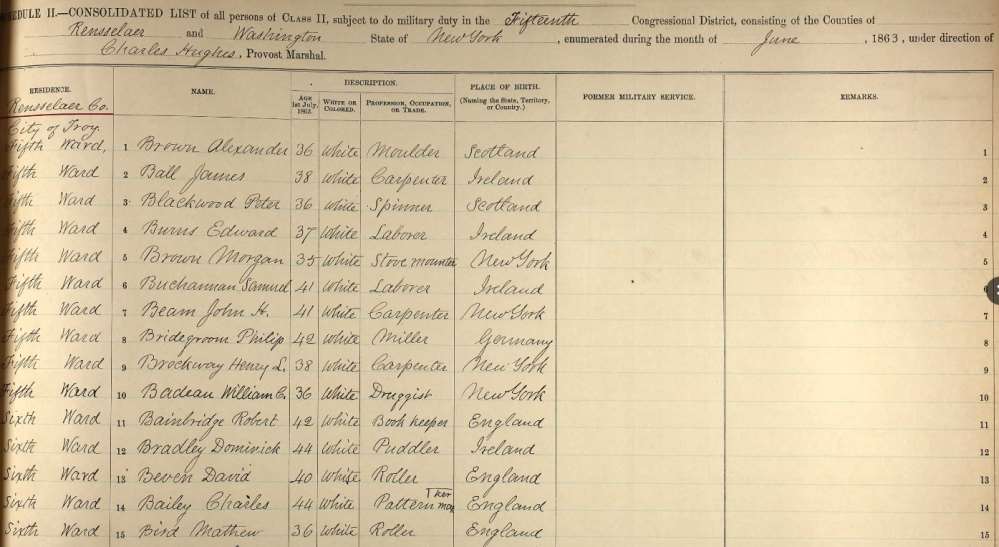 SCHEDULE II.—CONSOLIDATED LIST of all persons of CLASS II, subject to do military duty in the Fifteenth Congressional District, consisting of the Counties of
Rensselaer and Washington State of New York, enumerated during the month of June, 1863, under direction of
Charles Hughes, Provost Marshal.
DESCRIPTION.
RESIDENCE. NAME. AGE 1st July, 1863. WHITE OR COLORED. PROFESSION, OCCUPATION, OR TRADE. PLACE OF BIRTH. (Naming the State, Territory, or Country.) FORMER MILITARY SERVICE. REMARKS.
Rensselaer Co.
City of Troy.
Fifth Ward, 1 Brown Alexander 36 White Moulder Scotland 1
Fifth Ward 2 Ball James 38 White Carpenter Ireland 2
Fifth Ward 3 Blackwood Peter 36 White Spinner Scotland 3
Fifth Ward 4 Burns Edward 37 White Laborer Ireland 4
Fifth Ward 5 Brown Morgan 35 White Stove mounter New York 5
Fifth Ward 6 Buchannan Samuel 41 White Laborer Ireland 6
Fifth Ward 7 Beam John H. 41 White Carpenter New York 7
Fifth Ward 8 Bridegroom Philip 42 White Miller Germany 8
Fifth Ward 9 Brockway Henry L. 38 White Carpenter New York 9
Fifth Ward 10 Badeau William C. 36 White Druggist New York 10
Sixth Ward 11 Bainbridge Robert 42 White Book keeper England 11
Sixth Ward 12 Bradley Dominick 44 White Puddler Ireland 12
Sixth Ward 13 Beven David 40 White Roller England 13
Sixth Ward 14 Bailey Charles 44 White Pattern maker England 14
Sixth Ward 15 Bird Mathew 36 White Roller England 15